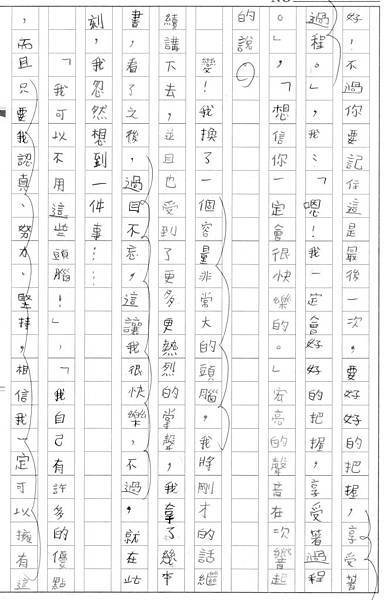 NO
好！不過你要記住這是最後一次，要好好的把握，享受著
過程。」，我：「嗯！我一定會好好的把握，享受著過程
。」，「想信你一定會很快樂的。」宏亮的聲音在次響起
的說。
變！我換了一個容量非常大的頭腦，我將剛才的話繼
續講下去，並且也受到了更多更熱烈的掌聲，我拿了幾本
書，看了之後，過目不忘，這讓我很快樂，不過，就在此
刻，我忽然想到一件事……
「我可以不用這些頭腦！」，「我自己有許多的優點
，而且只要我認真、努力、堅持，相信我一定可以擁有這